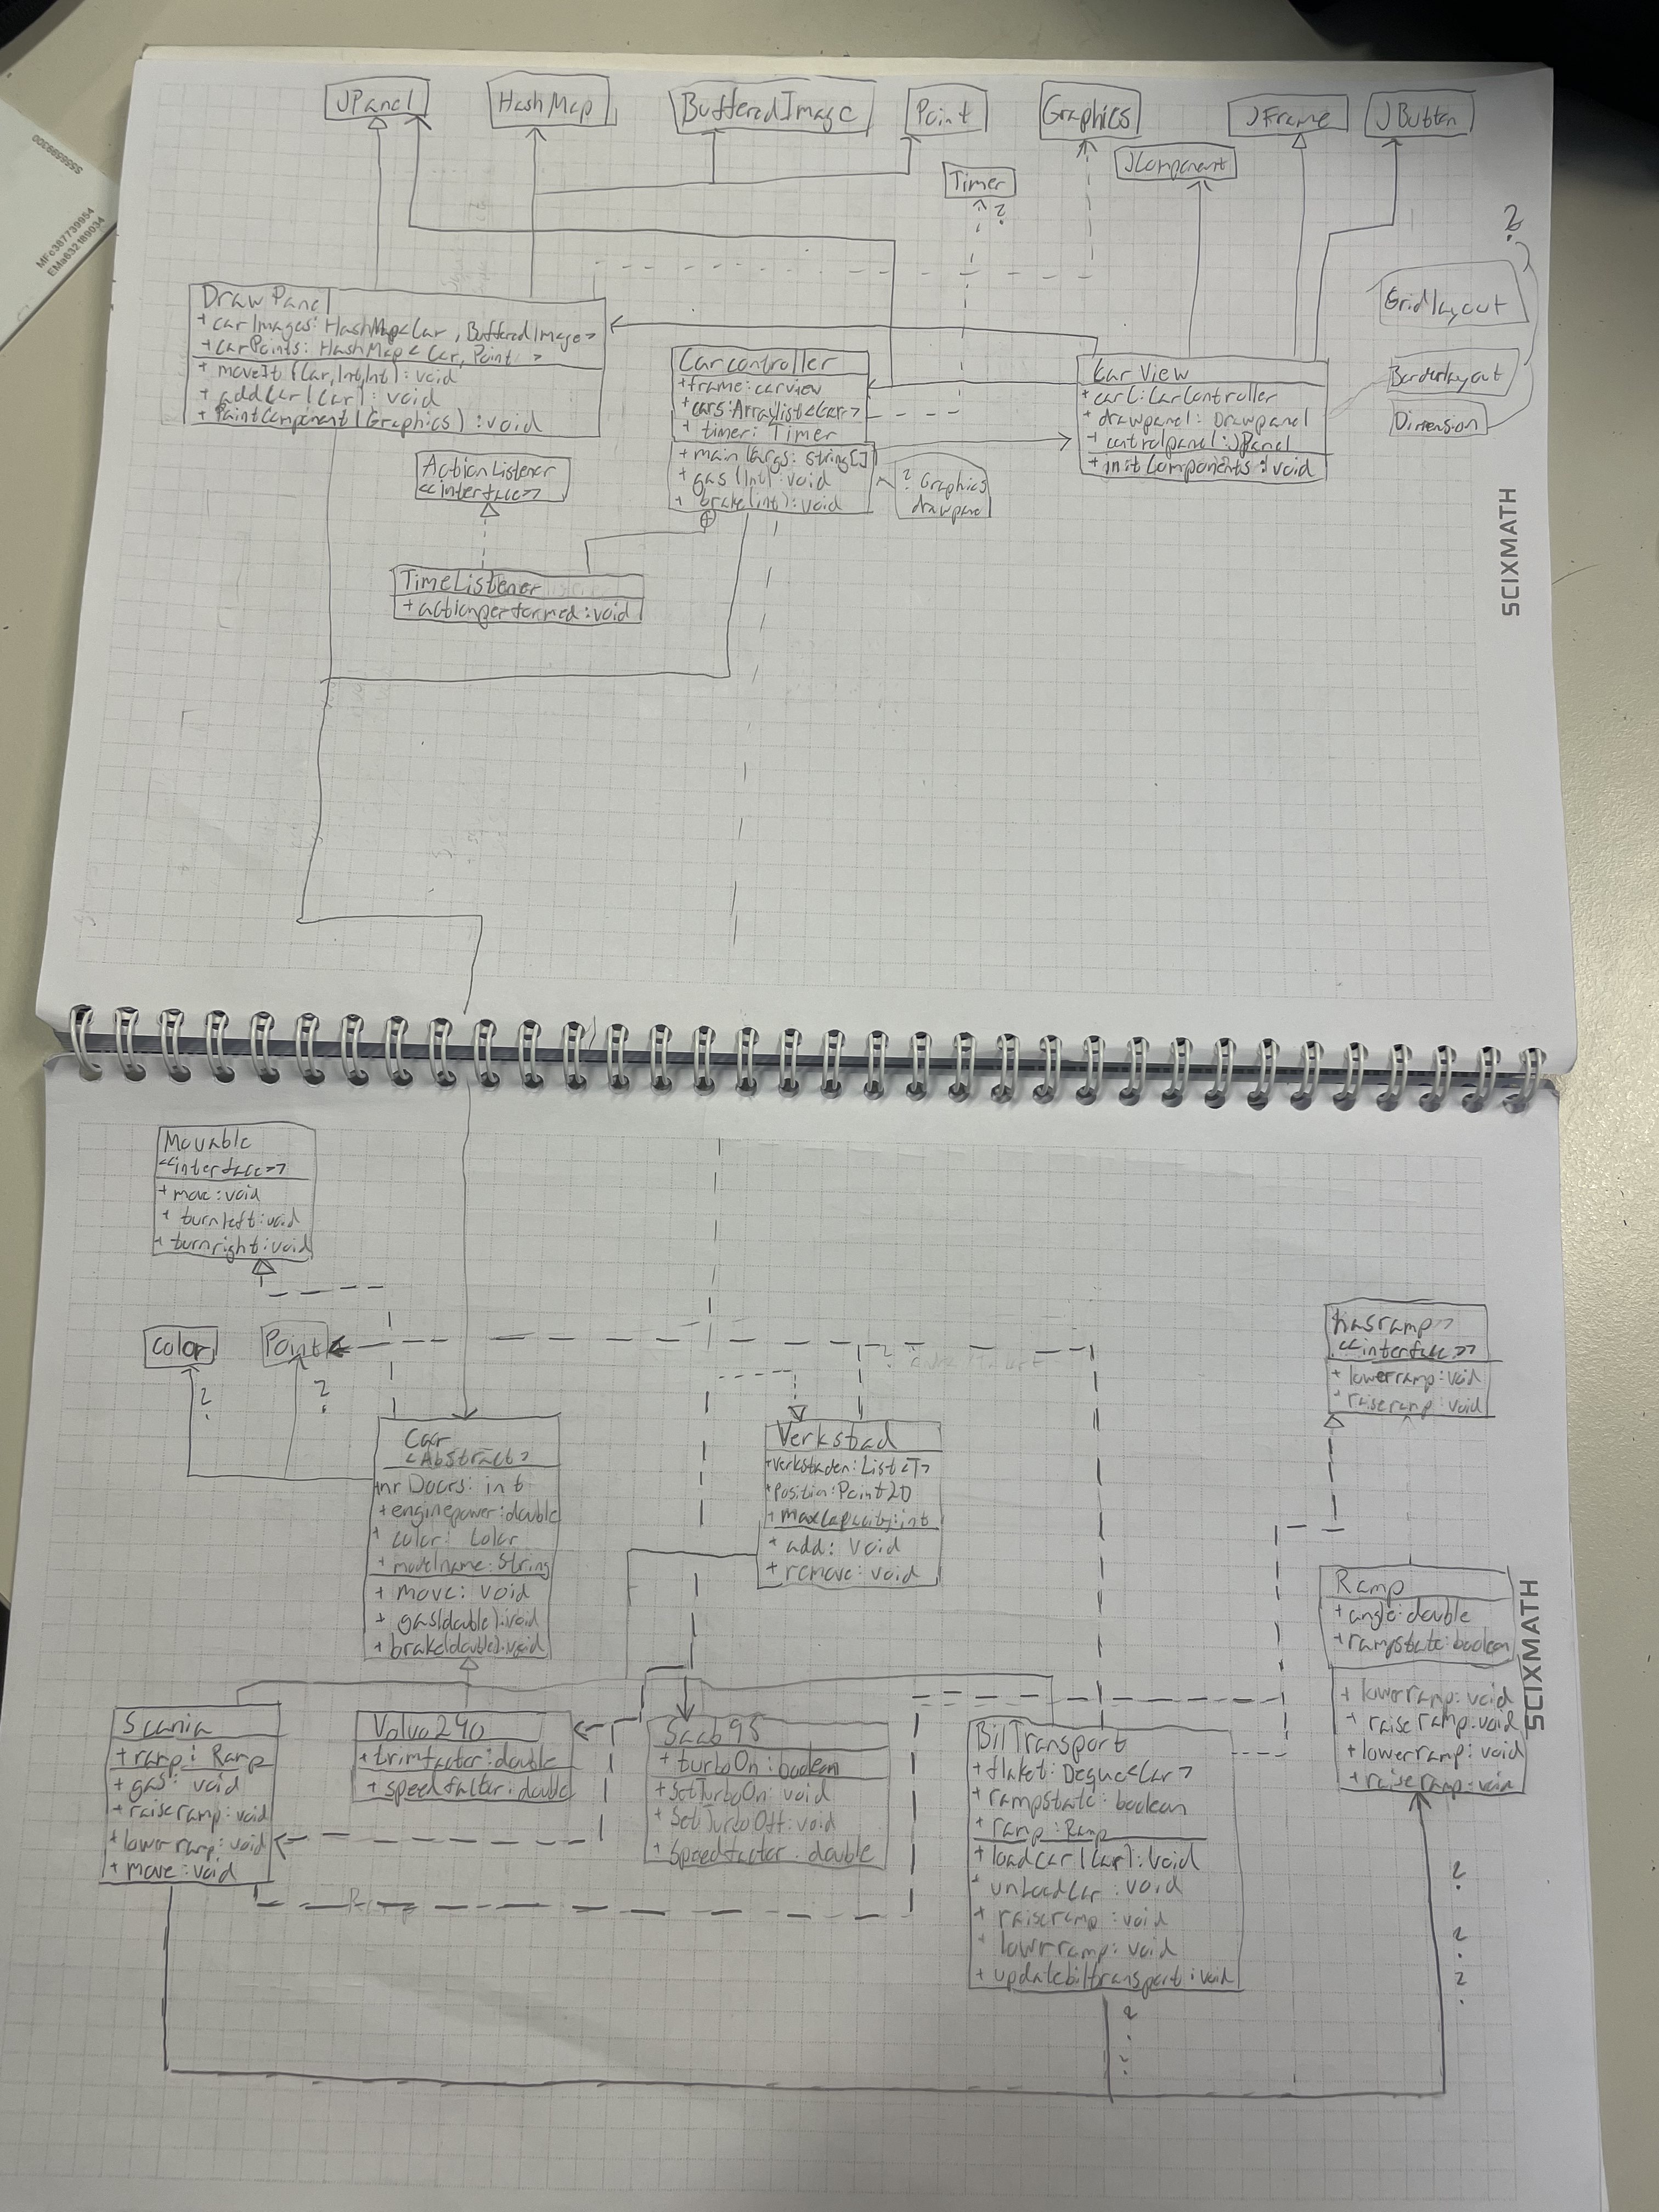 JPanel
HashMap
BufferedImage
Point
Graphics
JFrame
JButton
JComponent
Timer
?
?
5555599300
MFo387739954
EMa632189034
DrawPanel
+ carImages: HashMap<Car, BufferedImage>
+ carPoints: HashMap<Car, Point>
+ moveIt (Car, Int, Int): void
+ addCar (Car): void
+ PaintComponent (Graphics): void
Carcontroller
+ frame: carview
+ cars: ArrayList<Car>
+ timer: Timer
+ main (args: string[])
+ gas (Int): void
+ brake (int): void
Car View
+ carC: CarController
+ drawpanel: Drawpanel
+ controlpanel: JPanel
+ initComponents: void
Gridlayout
Borderlayout
Dimension
? Graphics
drawpanel
ActionListener
<<interface>>
TimeListener
+ actionperformed: void
SCIXMATH
Movable
<<interface>>
+ move: void
+ turnleft: void
+ turnright: void
Color
Point
?
?
?
hasramp
<<interface>>
+ lowerramp: void
+ raiseramp: void
Car
<Abstract>
+nr Doors: int
+ enginepower: double
+ color: Color
+ modelname: String
+ move: void
+ gas(double): void
+ brake(double): void
Verkstad
+ verkstaden: List<T>
+ position: Point2D
+ maxCapacity: int
+ add: void
+ remove: void
Ramp
+ angle: double
+ rampstate: boolean
+ lowerramp: void
+ raiseramp: void
+ lowerramp: void
+ raiseramp: void
SCIXMATH
Scania
+ ramp: Ramp
+ gas: void
+ raiseramp: void
+ lowerramp: void
+ move: void
Volvo240
+ trimfactor: double
+ speedfactor: double
Saab95
+ turboOn: boolean
+ SetTurboOn: void
+ SetTurboOff: void
+ Speedfactor: double
BilTransport
+ flaket: Deque<Car>
+ rampstate: boolean
+ ramp: Ramp
+ loadCar (Car): void
+ unloadCar: void
+ raiseramp: void
+ lowerramp: void
+ updatebiltransport: void
?
?
?
?